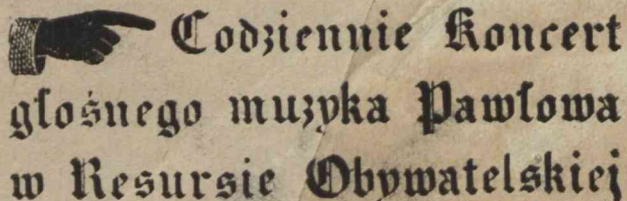 Codziennie Koncert
głośnego muzyka Pawłowa
w Resursie Obywatelskiej